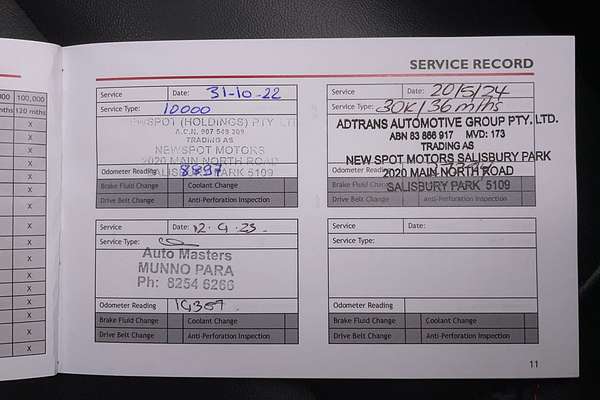 SERVICE RECORD
000 100,000
mths 120 mths
X
X
X
X
X
X
X
X
X
X
X
X
X
X
X
X
Service Date: 31-10-22
Service Type: 10000
NEWSPOT (HOLDINGS) PTY LTD
A.C.N. 007 549 309
TRADING AS
NEWSPOT MOTORS
2020 MAIN NORTH ROAD
SALISBURY PARK 5109
Odometer Reading 8897
Brake Fluid Change Coolant Change
Drive Belt Change Anti-Perforation Inspection
Service Date: 20/5/24
Service Type: 30K/36 mths
ADTRANS AUTOMOTIVE GROUP PTY. LTD.
ABN 83 866 917 MVD: 173
TRADING AS
NEW SPOT MOTORS SALISBURY PARK
2020 MAIN NORTH ROAD
SALISBURY PARK 5109
Odometer Reading
Brake Fluid Change
Drive Belt Change Anti-Perforation Inspection
Service Date: 12.9.23.
Service Type:
Auto Masters
MUNNO PARA
Ph: 8254 6266
Odometer Reading
Brake Fluid Change Coolant Change
Drive Belt Change Anti-Perforation Inspection
Service Date:
Service Type:
Odometer Reading
Brake Fluid Change Coolant Change
Drive Belt Change Anti-Perforation Inspection
11